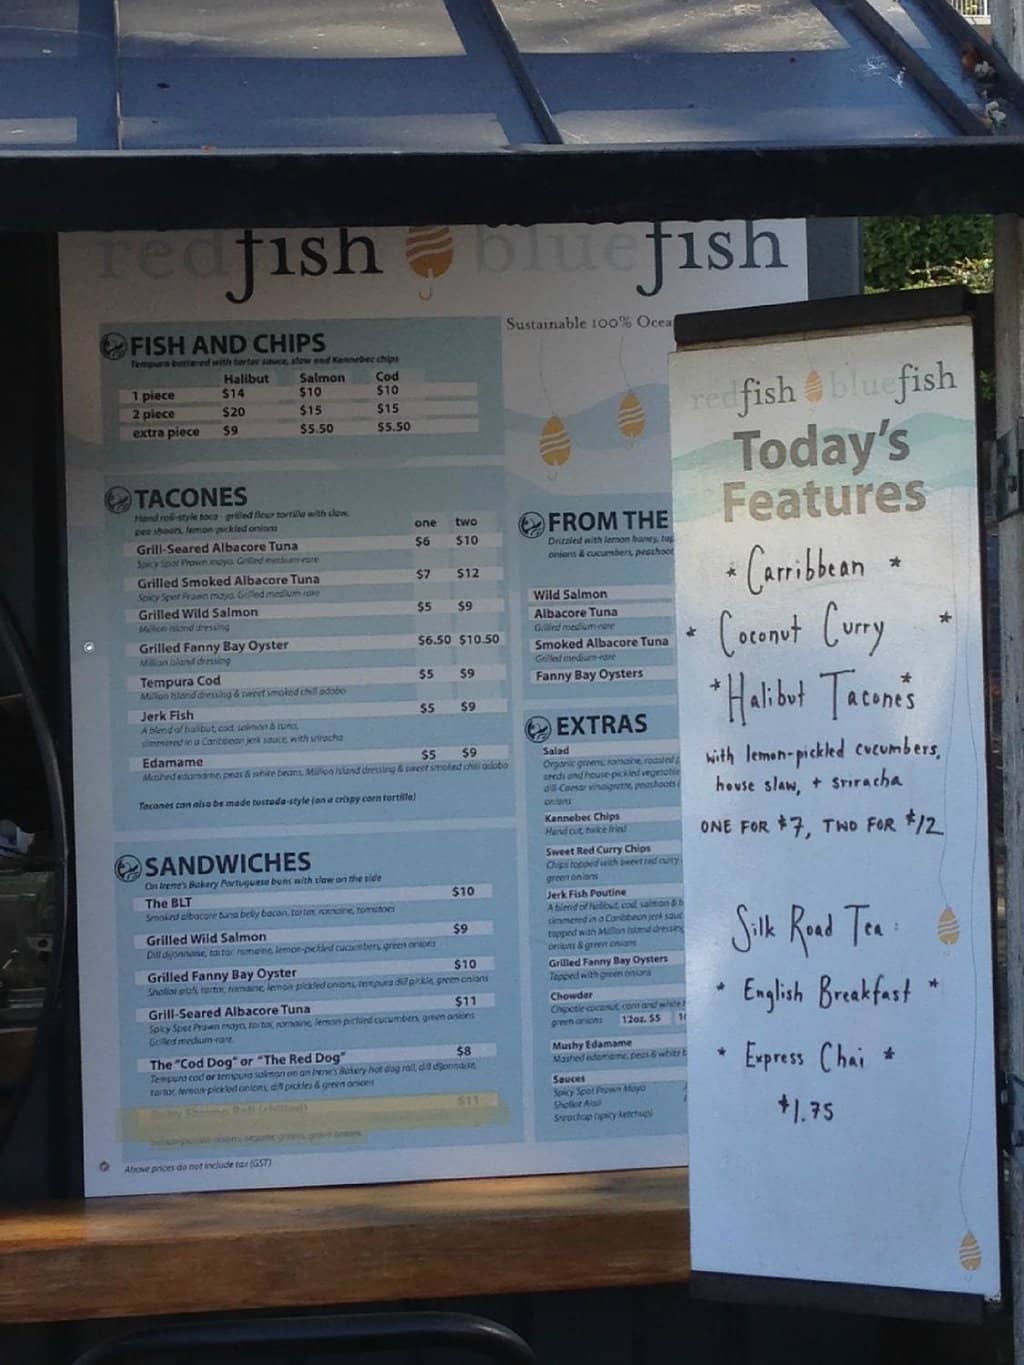 redfish bluefish
Sustainable 100% Ocea
FISH AND CHIPS
Tempura battered with tartar sauce, slaw and Kennebec chips
Halibut Salmon Cod
1 piece $14 $10 $10
2 piece $20 $15 $15
extra piece $9 $5.50 $5.50
TACONES
Hand roll-style taco - grilled flour tortilla with slaw,
pea shoots, lemon-pickled onions
one two
Grill-Seared Albacore Tuna $6 $10
Spicy Spot Prawn mayo. Grilled medium-rare
Grilled Smoked Albacore Tuna $7 $12
Spicy Spot Prawn mayo. Grilled medium-rare
Grilled Wild Salmon $5 $9
Million Island dressing
Grilled Fanny Bay Oyster $6.50 $10.50
Million Island dressing
Tempura Cod $5 $9
Million Island dressing & sweet smoked chili adobo
Jerk Fish $5 $9
A blend of halibut, cod, salmon & tuna,
simmered in a Caribbean jerk sauce, with sriracha
Edamame $5 $9
Mashed edamame, peas & white beans, Million Island dressing & sweet smoked chili adobo
Tacones can also be made tostada-style (on a crispy corn tortilla)
SANDWICHES
On Irene's Bakery Portuguese buns with slaw on the side
The BLT $10
Smoked albacore tuna belly bacon, tartar, romaine, tomatoes
Grilled Wild Salmon $9
Dill dijonnaise, tartar, romaine, lemon-pickled cucumbers, green onions
Grilled Fanny Bay Oyster $10
Shallot aioli, tartar, romaine, lemon pickled onions, tempura dill pickle, green onions
Grill-Seared Albacore Tuna $11
Spicy Spot Prawn mayo, tartar, romaine, lemon pickled cucumbers, green onions
Grilled medium-rare.
The "Cod Dog" or "The Red Dog" $8
Tempura cod or tempura salmon on an Irene's Bakery hot dog roll, dill dijonnaise,
tartar, lemon-pickled onions, dill pickles & green onions
$11
Above prices do not include tax (GST)
FROM THE
Drizzled with lemon honey,
onions & cucumbers, peashoot
Wild Salmon
Albacore Tuna
Grilled medium-rare
Smoked Albacore Tuna
Grilled medium-rare
Fanny Bay Oysters
EXTRAS
Salad
Organic greens, romaine, roasted
seeds and house-pickled vegetable
dill-Caesar vinaigrette, peashoots
onions
Kennebec Chips
Hand cut, twice fried
Sweet Red Curry Chips
Chips topped with sweet red curry
green onions
Jerk Fish Poutine
A blend of halibut, cod, salmon &
simmered in a Caribbean jerk sauc
topped with Million Island dressing
onions & green onions
Grilled Fanny Bay Oysters
Topped with green onions
Chowder
Chipotle coconut, corn and white
green onions 12oz. $5
Mushy Edamame
Mashed edamame, peas & white b
Sauces
Spicy Spot Prawn Mayo
Shallot Aioli
Srirachup (spicy ketchup)
redfish bluefish
Today's
Features
* Carribbean *
* Coconut Curry *
* Halibut Tacones *
with lemon-pickled cucumbers,
house slaw, + sriracha
ONE FOR $7, TWO FOR $12
Silk Road Tea:
* English Breakfast *
* Express Chai *
$1.75